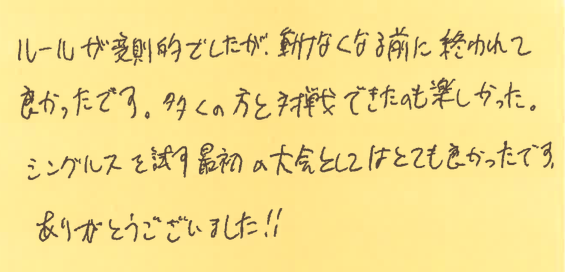 ルールが変則的でしたが、動けなくなる前に終われて
良かったです。多くの方と対戦できたのも楽しかった。
シングルスを試す最初の大会としてはとても良かったです。
ありがとうございました!!